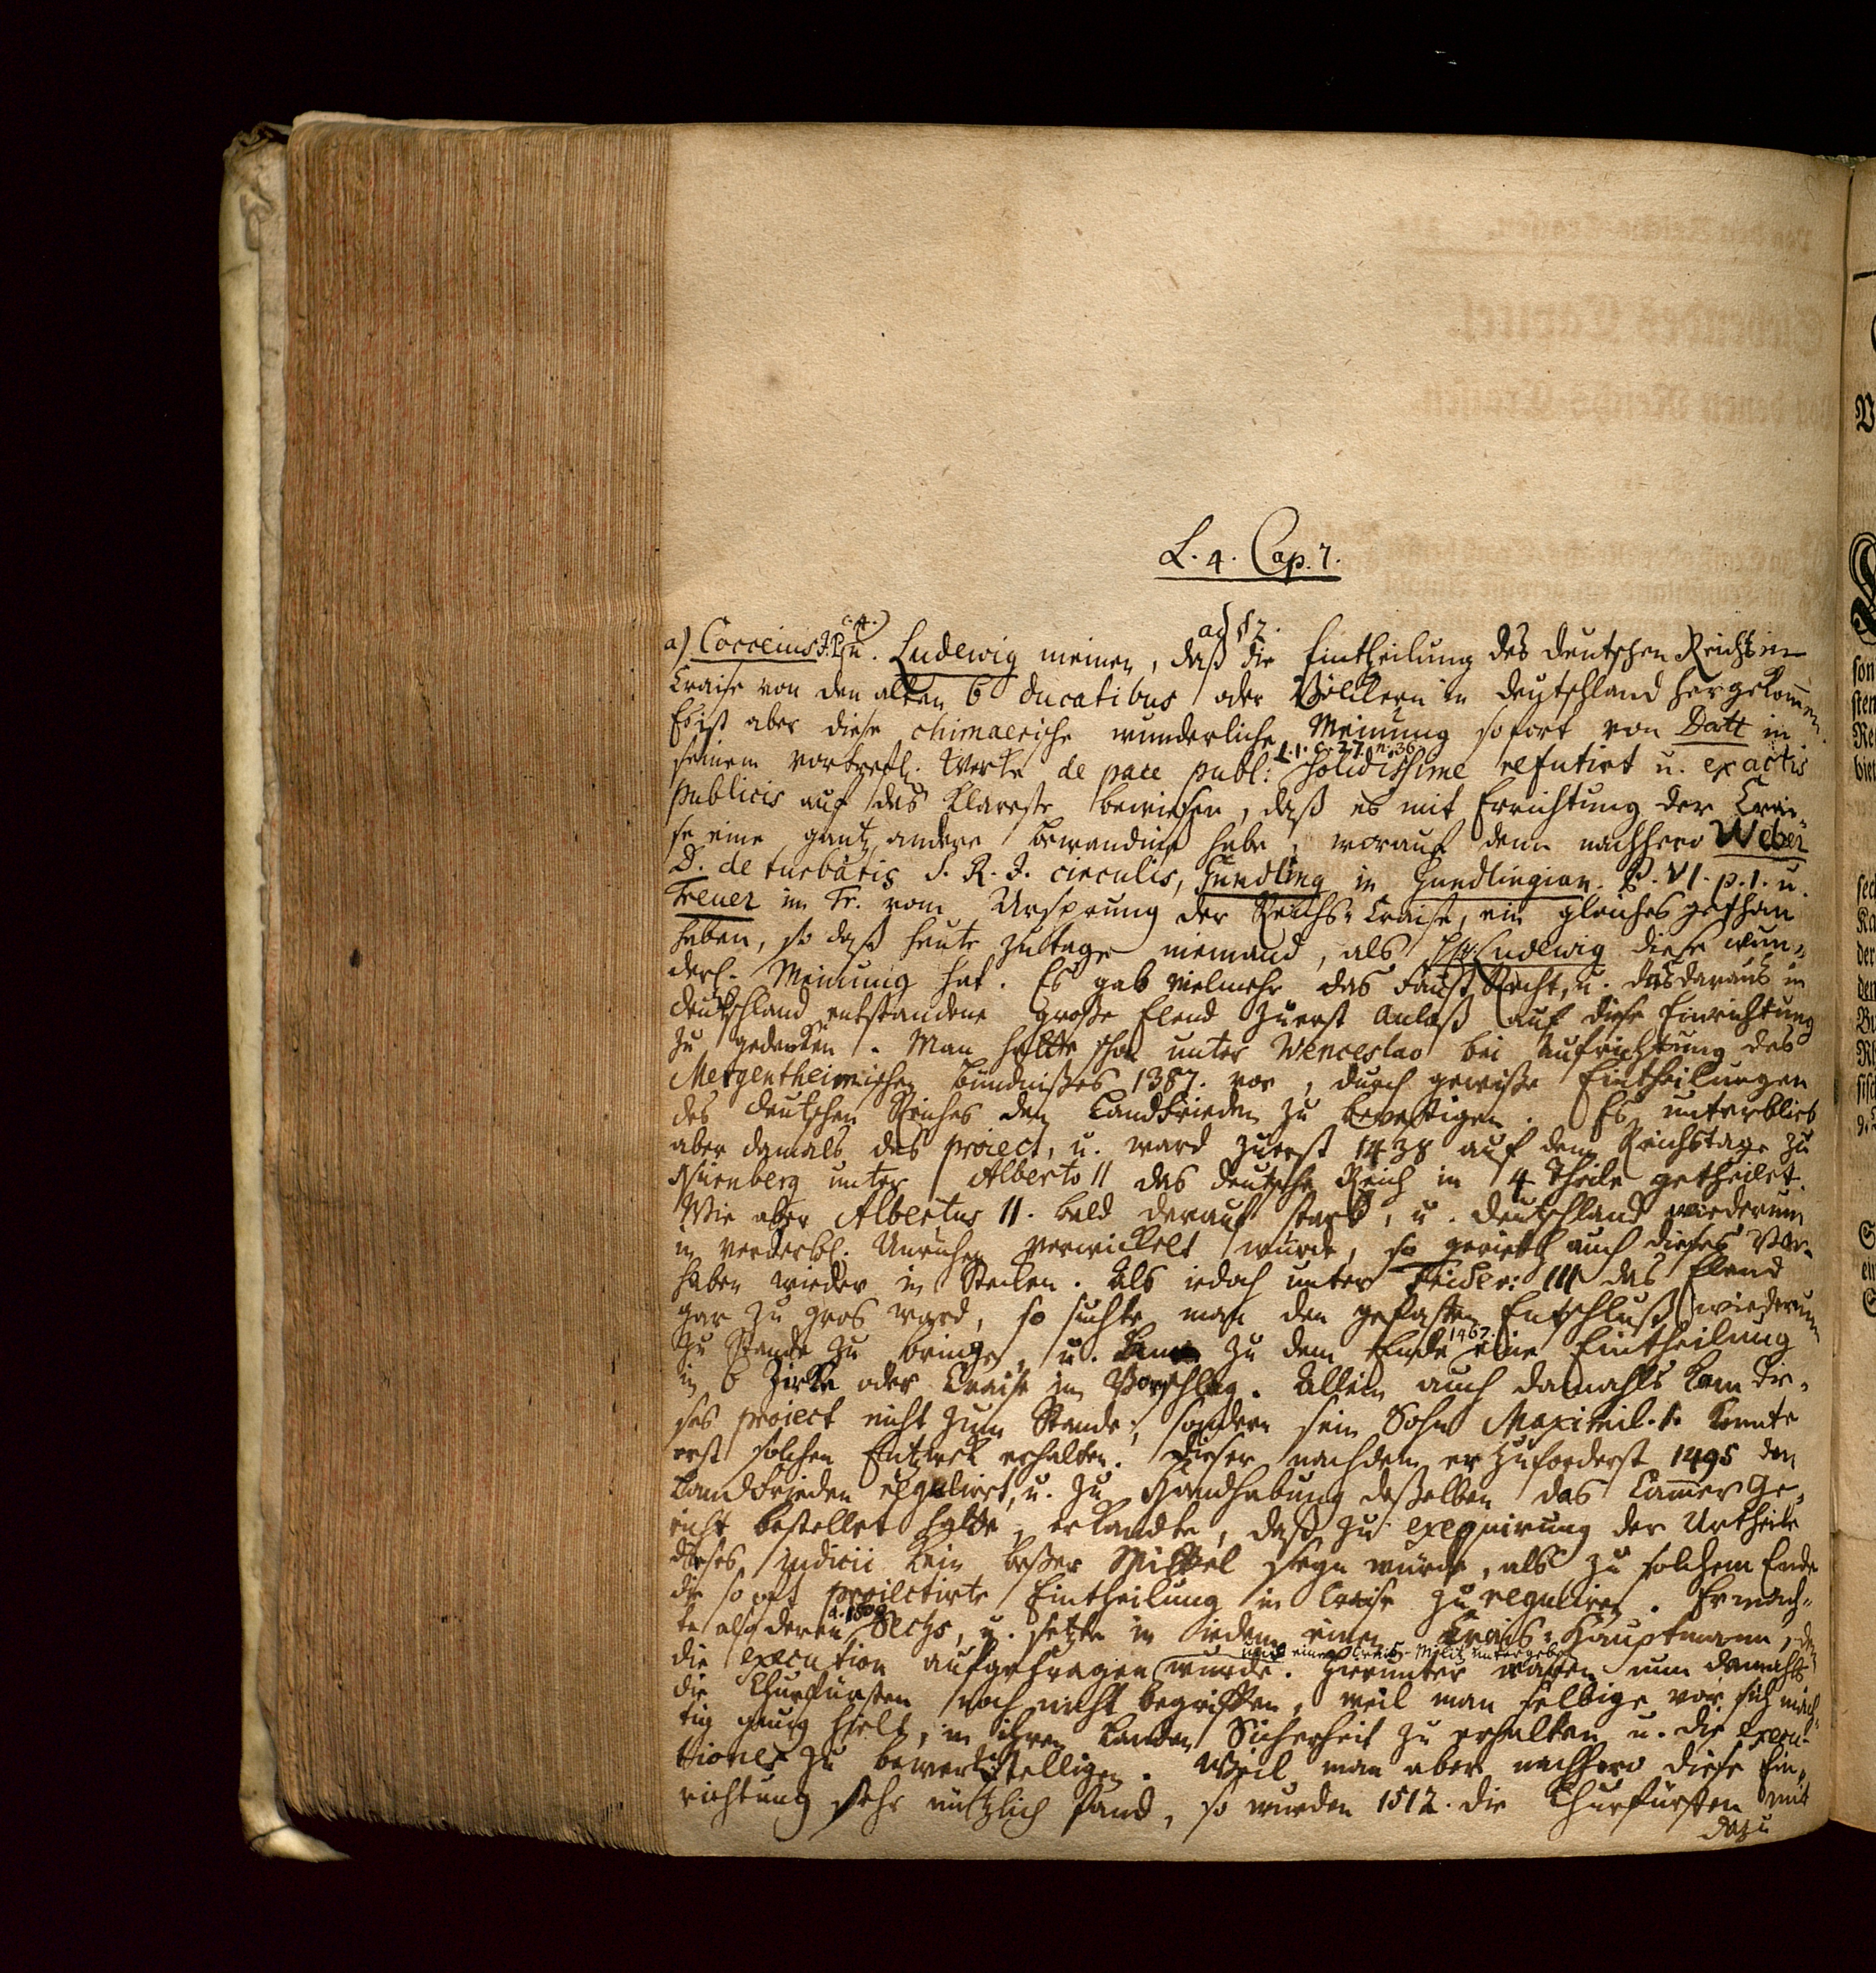 L. 4. Cap. 7.
ad § 2.
a) Cocceius J. P. c. 4.) u. Ludewig meinen, daß die Eintheilung des deutschen Reichs in
Craise von den alten 6 ducatibus oder Völckern in Deutschland hergekommen.
Es ist aber diese chimaerische wunderliche Meinung sofort von Datt in
seinem vortrefl. Werke de pace publ: L. 1. c. 27. n. 36 solidissime refutirt u. ex actis
publicis auf das klareste bewiesen, daß es mit Errichtung der Crai-
se eine gantz andere bewandniß habe, worauf denn nachhero Weber
D. de turbatis S. R. J. circulis, Gundling in Gundlingian. P. VI. p. 1. u.
Treuer im Tr. vom Ursprung der Reichs-Craise, ein gleiches gethan
haben, so daß heute zu tage niemand, als Ludewig diese wun-
derl. Meinung hat. Es gab vielmehr das Faust Recht, u. das daraus in
Deutschland entstandene große Elend zuerst Anlaß auf diese Einrichtung
zu gedenken. Man hatte schon unter Wenceslao bei Aufrichtung des
Mergentheimischen Bündnißes 1387. vor, durch gewiße Eintheilungen
des deutschen Reiches den Landfrieden zu bevestigen. Es unterblieb
aber damals das project, u. ward zuerst 1438 auf dem Reichstage zu
Nürnberg unter Alberto II das deutsche Reich in 4 Theile getheilet.
Wie aber Albertus II. bald darauf starb, u. Deutschland wiederum
in verderbl. Unruhen verwickelt wurde, so gerieth auch dieses Vor-
haben wieder in Stecken. Als iedoch unter Frider: III das Elend
gar zu gros ward, so suchte man den gefasten Entschluß wiederum
zu Stande zu bringen, u. kam zu dem Ende 1467. eine Eintheilung
in 6 Zirke oder Craise in Vorschlag. Allein auch damahls kam die-
ses project nicht zum Stande, sondern sein Sohn Maximil. I. konnte
erst solchen Entzweck erhalten. Dieser nachdem er zuforderst 1495 den
Landfrieden regulirt, u. zu Handhabung deßelben das Cammer Ge-
richt bestellet hatte, erkandte, daß zu exequirung der Urtheile
dieses judicii kein beßer Mittel seyn würde, als zu solchem Ende
die so oft projectirte Eintheilung in Craise zu reguliren. Er mach-
te also deren a. 1500 Sechs, u. setzte in iedem einen Crais-Hauptmann, dem
die execution aufgetragen und eine Crais-Miliz untergeben wurde. Hierunter waren nun damahls
die Churfürsten noch nicht begriffen, weil man selbige vor sich mäch-
tig genug hielt, in ihren Landen Sicherheit zu erhalten u. die Execu-
tiones zu bewerkstelligen. Weil man aber nachhero diese Ein-
richtung sehr nützlich fand, so wurden 1512. die Churfürsten mit
dazu